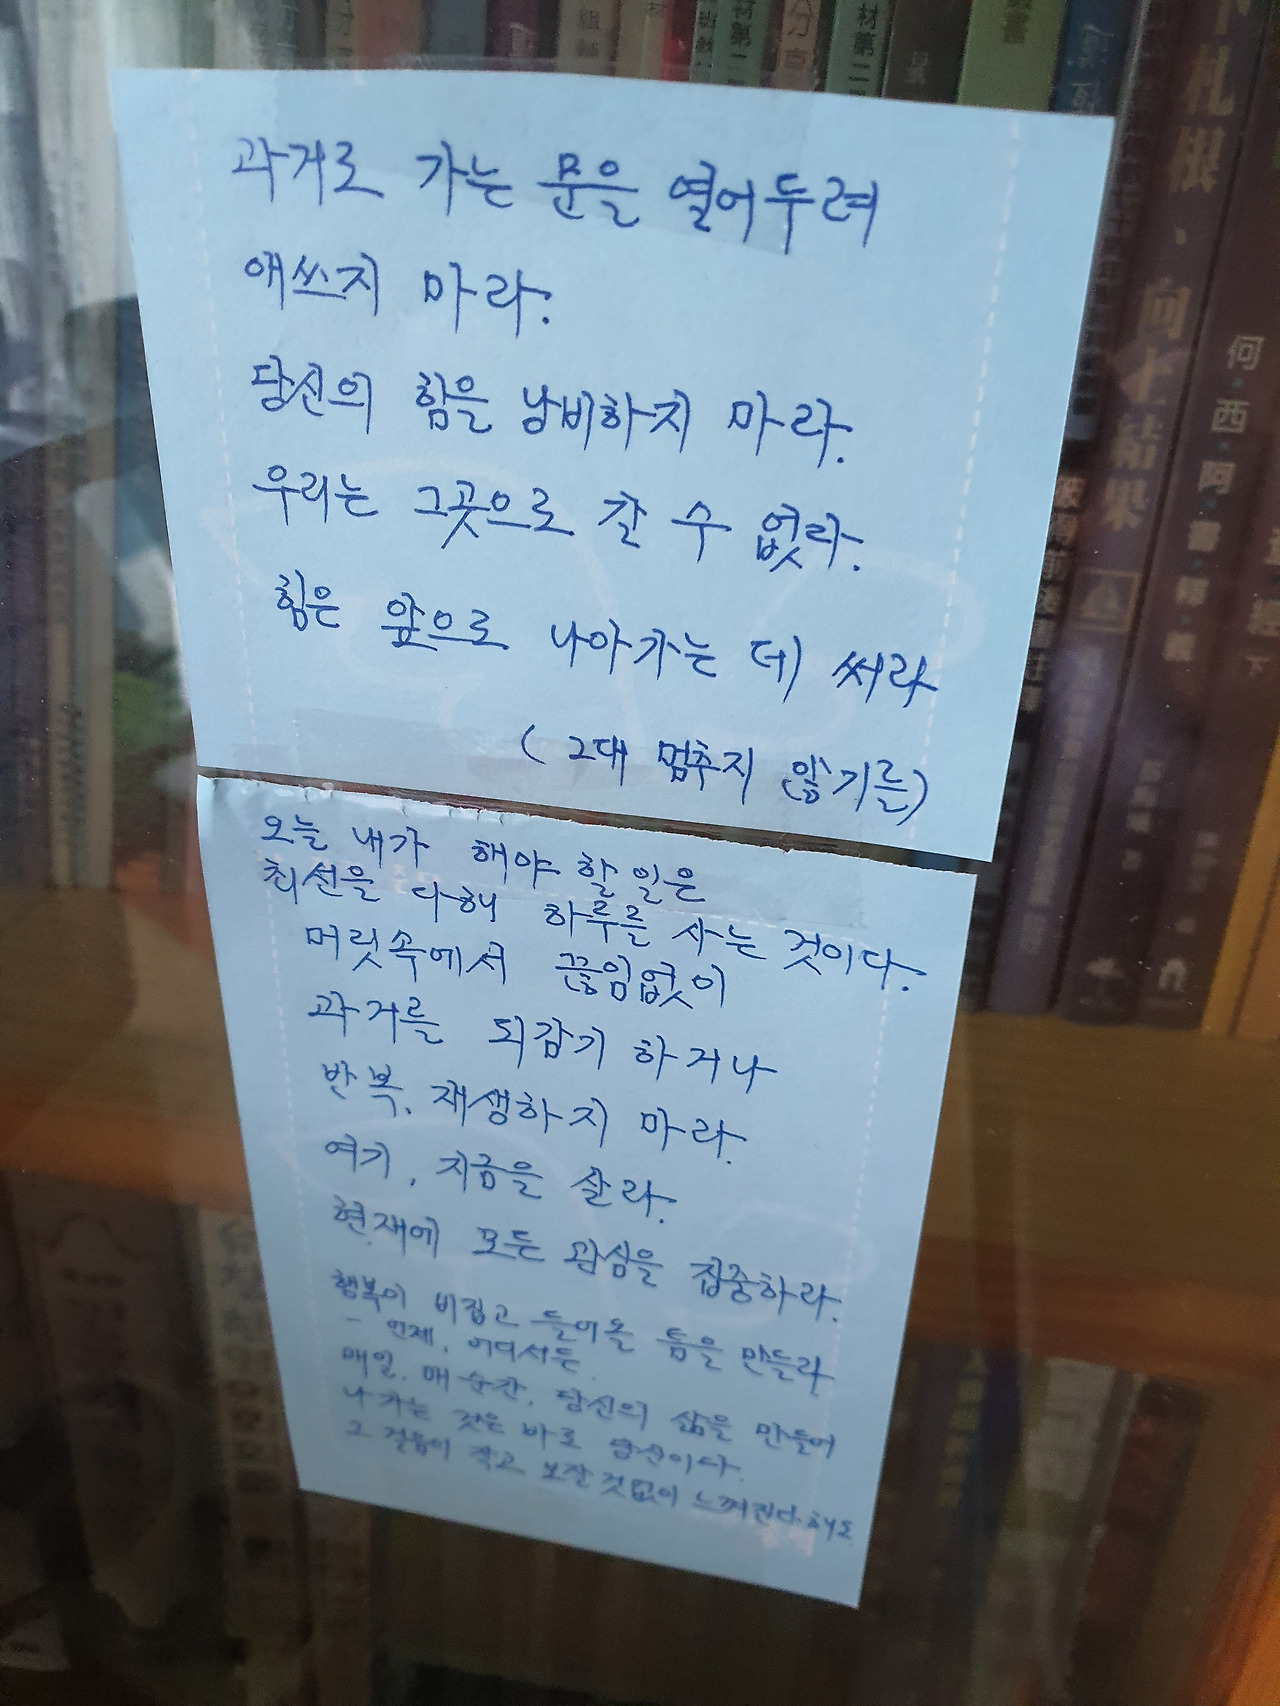 과거로 가는 문을 열어두려
애쓰지 마라.
당신의 힘을 낭비하지 마라.
우리는 그곳으로 갈 수 없다.
힘은 앞으로 나아가는 데 써라
(그대 멈추지 않기를)
오늘 내가 해야 할 일은
최선을 다해 하루를 사는 것이다.
머릿속에서 끊임없이
과거를 되감기 하거나
반복, 재생하지 마라.
여기, 지금을 살라.
현재에 모든 관심을 집중하라.
행복이 비집고 들어올 틈을 만들라
- 언제, 어디서든.
매일, 매 순간, 당신의 삶을 만들어
나가는 것은 바로 당신이다.
그 걸음이 작고 보잘 것 없이 느껴진다 해도
下札根、向上結果
何·西·阿·書·釋·義
材第二